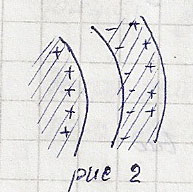 рис 2